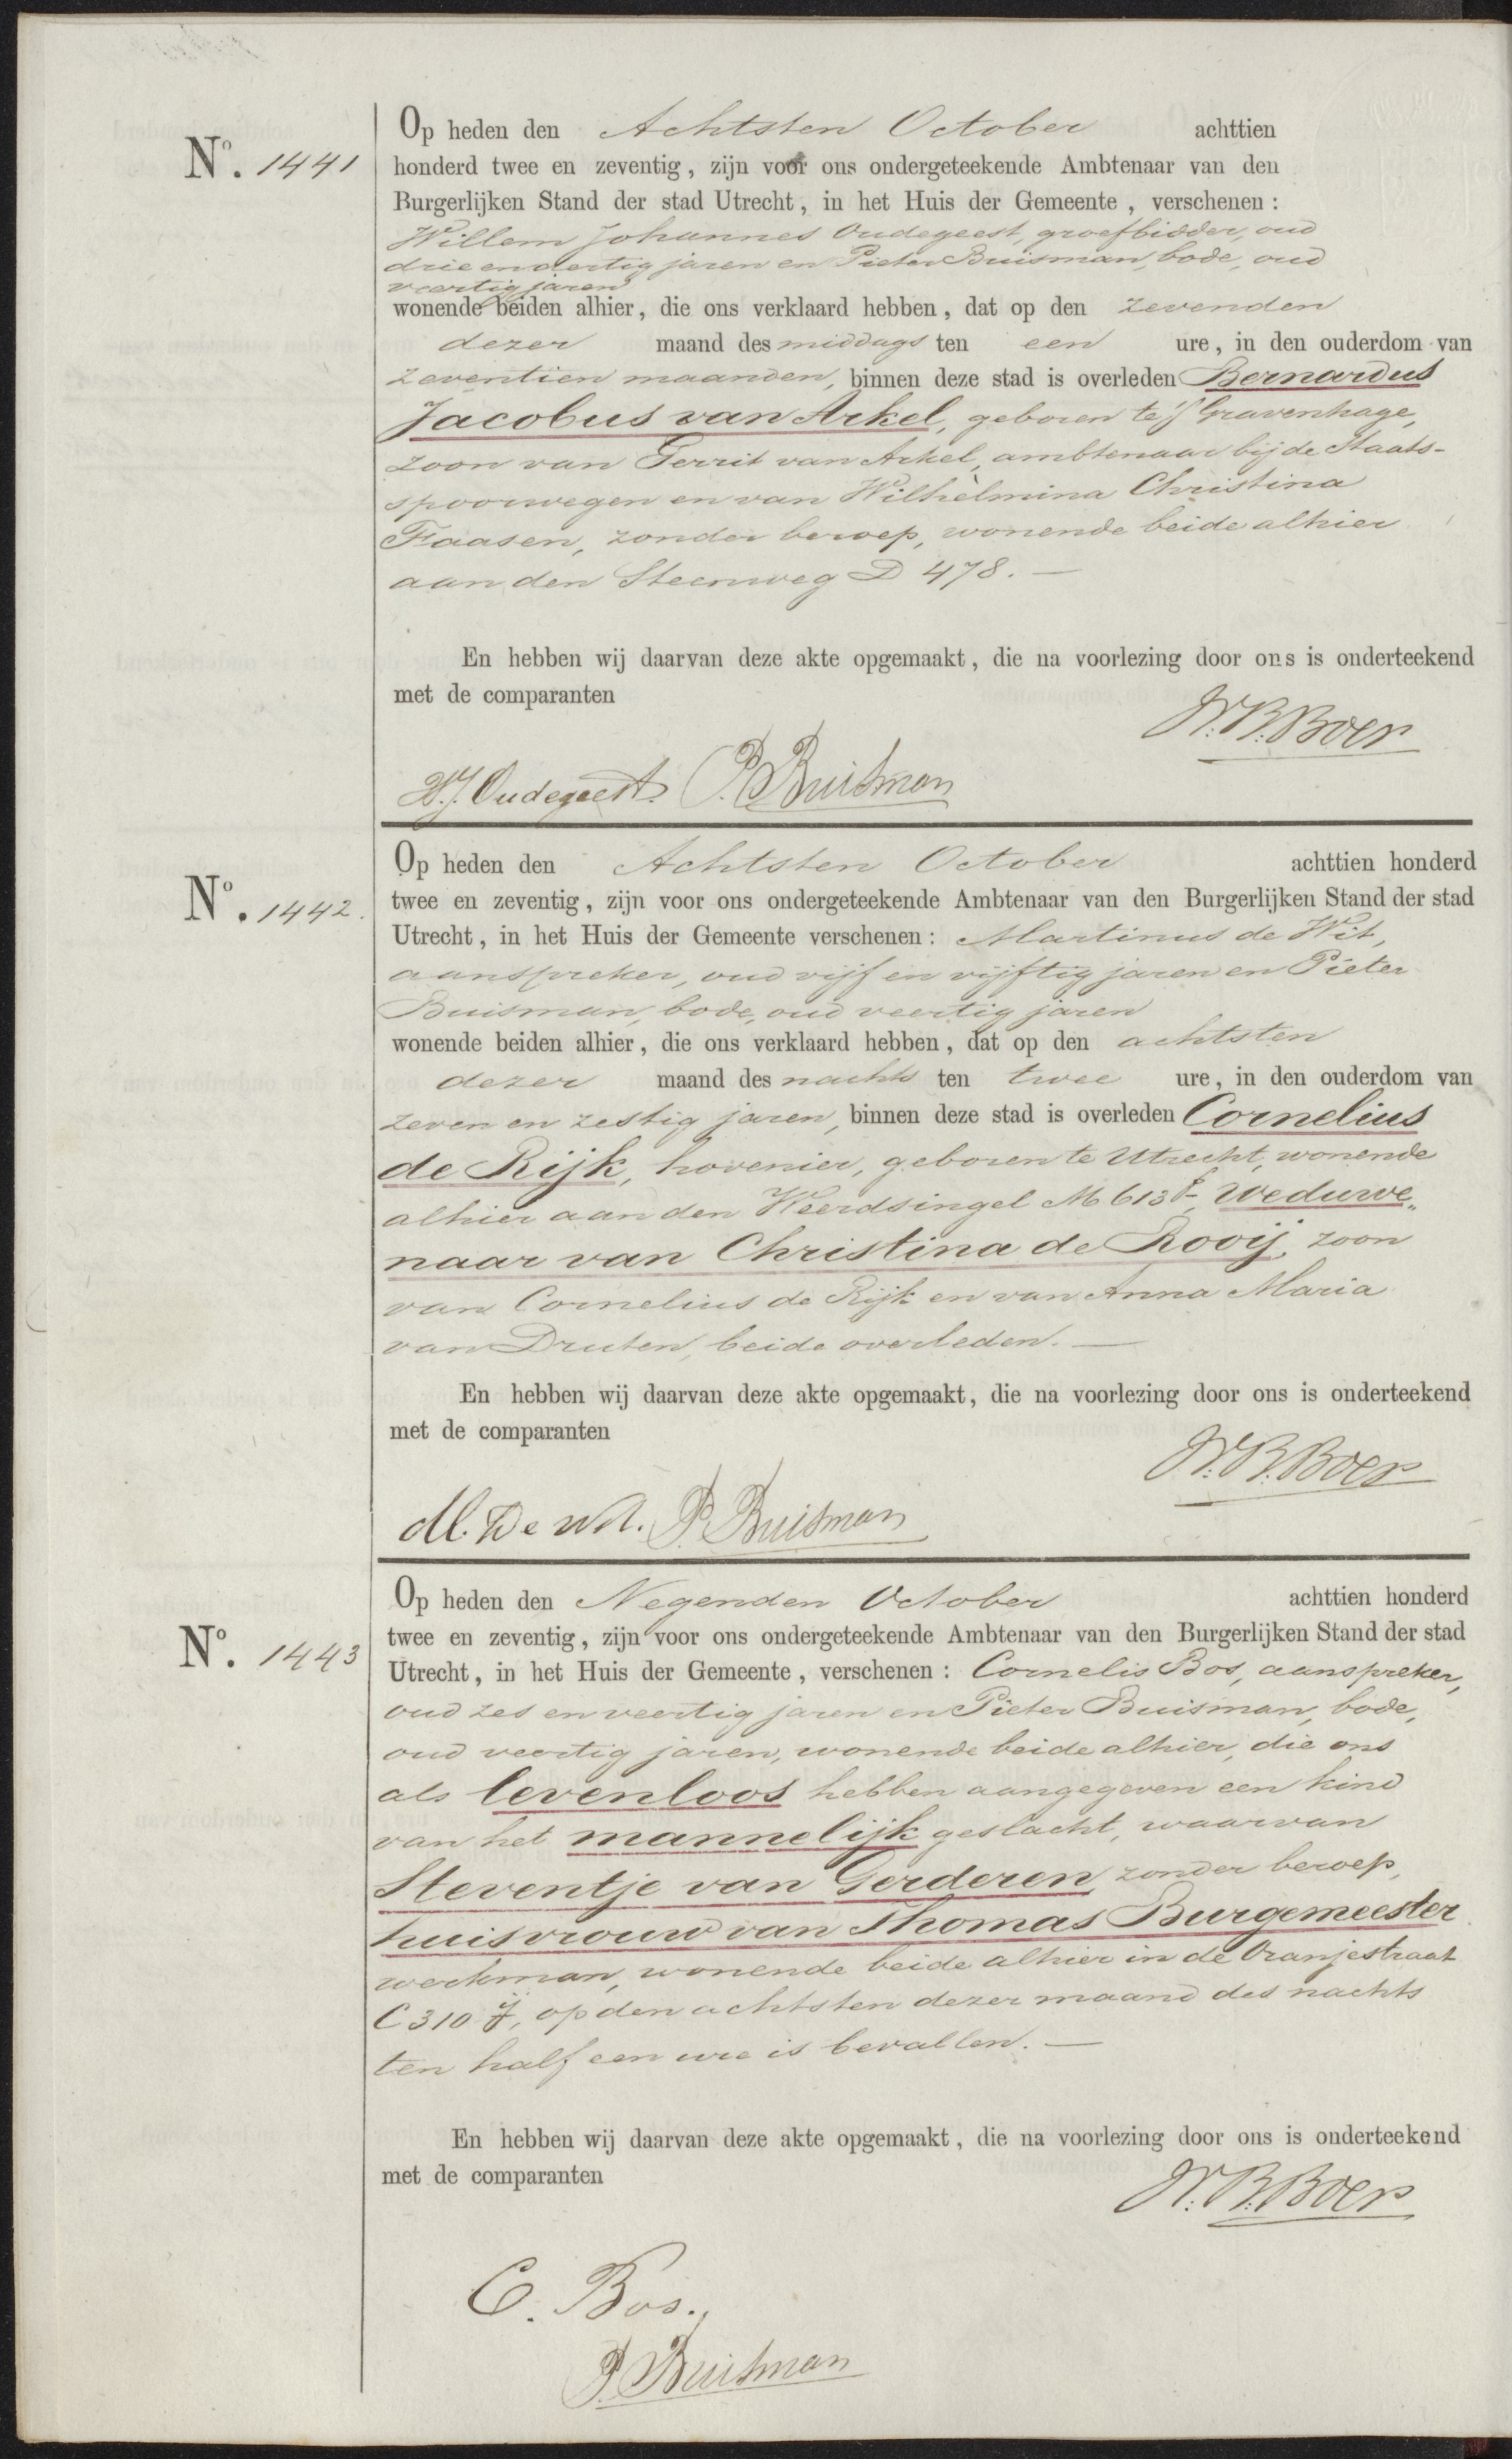 Op heden den Achtsten October achttien
Nº. 1441
honderd twee en zeventig, zijn voor ons ondergeteekende Ambtenaar van den
Burgerlijken Stand der stad Utrecht, in het Huis der Gemeente, verschenen:
Willem Johannes Oudegeest, groefbidder, oud
drie en dertig jaren en Pieter Buisman, bode, oud
veertig jaren
wonende beiden alhier, die ons verklaard hebben, dat op den zevenden
dezer maand des middags ten een ure, in den ouderdom van
zeventien maanden, binnen deze stad is overleden Bernardus
Jacobus van Arkel, geboren te 's Gravenhage,
zoon van Gerrit van Arkel, ambtenaar bij de Staats-
spoorwegen en van Wilhelmina Christina
Faasen, zonder beroep, wonende beide alhier
aan den Steenweg D 478. —
En hebben wij daarvan deze akte opgemaakt, die na voorlezing door ons is onderteekend
met de comparanten
W.B. Boer
W.J. Oudegeest. P. Buisman
Op heden den Achtsten October achttien honderd
Nº. 1442.
twee en zeventig, zijn voor ons ondergeteekende Ambtenaar van den Burgerlijken Stand der stad
Utrecht, in het Huis der Gemeente verschenen: Martinus de Wit,
aanspreker, oud vijf en vijftig jaren en Pieter
Buisman, bode, oud veertig jaren
wonende beiden alhier, die ons verklaard hebben, dat op den achtsten
dezer maand des nachts ten twee ure, in den ouderdom van
zeven en zestig jaren, binnen deze stad is overleden Cornelius
de Rijk, hovenier, geboren te Utrecht, wonende
alhier aan den Weerdsingel M 613 Weduwe„
naar van Christina de Rooij, zoon
van Cornelius de Rijk en van Anna Maria
van Druten, beide overleden. —
En hebben wij daarvan deze akte opgemaakt, die na voorlezing door ons is onderteekend
met de comparanten
W.B. Boer
M. De Wit. P. Buisman
Op heden den Negenden October achttien honderd
Nº. 1443
twee en zeventig, zijn voor ons ondergeteekende Ambtenaar van den Burgerlijken Stand der stad
Utrecht, in het Huis der Gemeente, verschenen: Cornelis Bos, aanspreker,
oud zes en veertig jaren en Pieter Buisman, bode,
oud veertig jaren, wonende beide alhier, die ons
als levenloos hebben aangegeven een kind
van het mannelijk geslacht, waarvan
Steventje van Gerderen, zonder beroep,
huisvrouw van Thomas Burgemeester
werkman, wonende beide alhier in de Oranjestraat
C 310 , op den achtsten dezer maand des nachts
ten half een ure is bevallen. —
En hebben wij daarvan deze akte opgemaakt, die na voorlezing door ons is onderteekend
met de comparanten
W.B. Boer
C. Bos.
P. Buisman